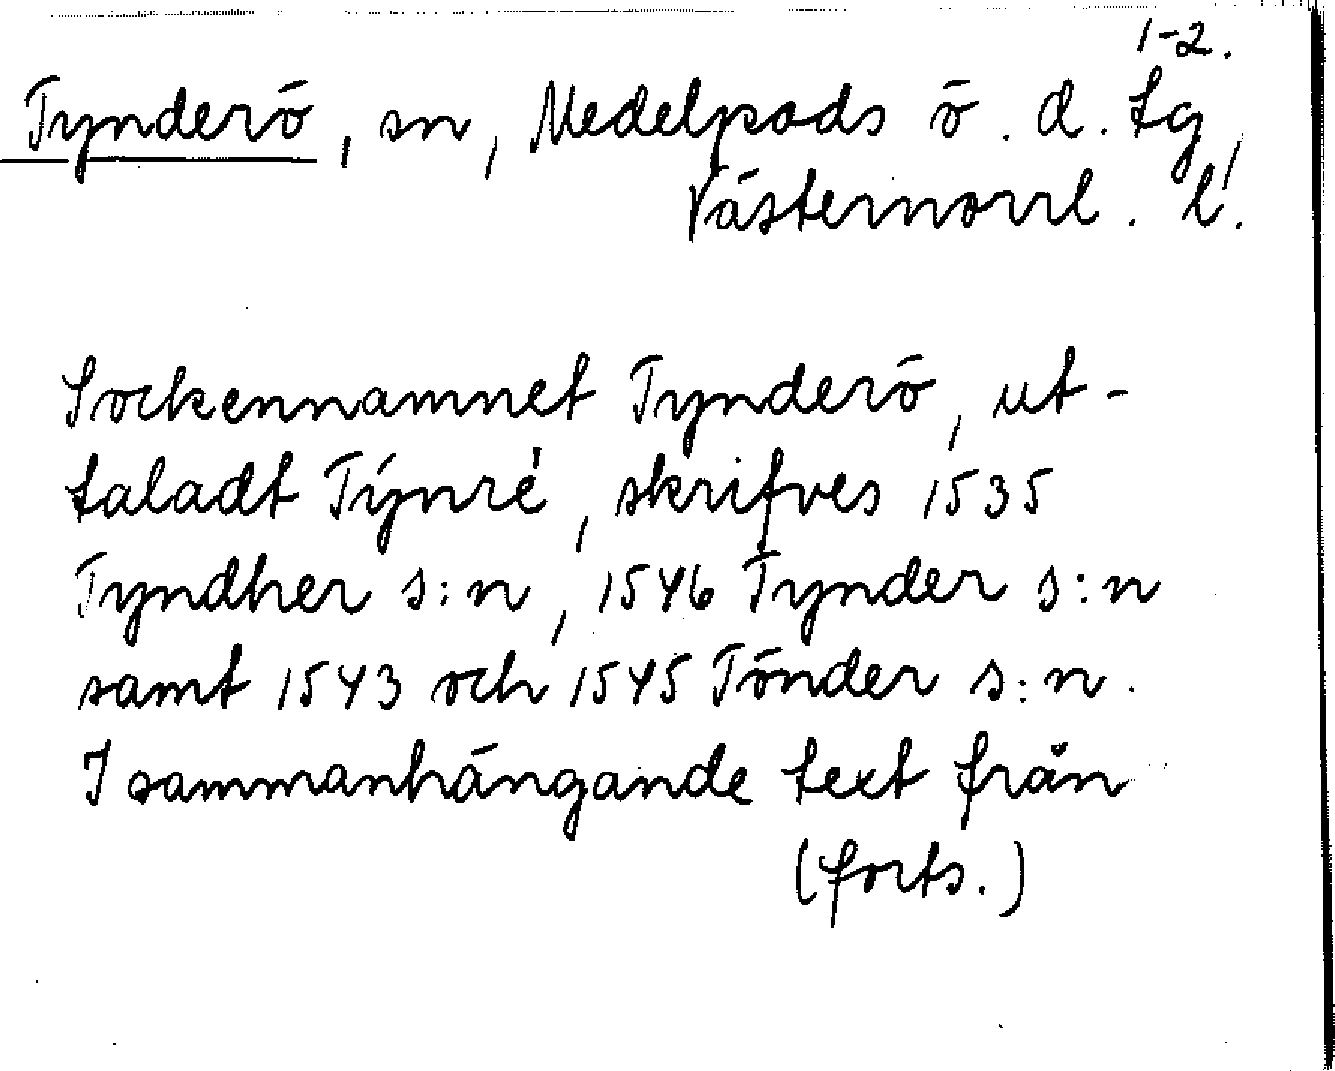 1-2.
Tynderö, sn, Medelpads ö. d. tg,
Västernorrl. l.
Sockennamnet Tynderö, ut-
taladt Týnré, skrifves 1535
Tyndher s:n, 1546 Tynder s:n
samt 1543 och 1545 Tönder s:n.
I sammanhängande text från
(forts.)